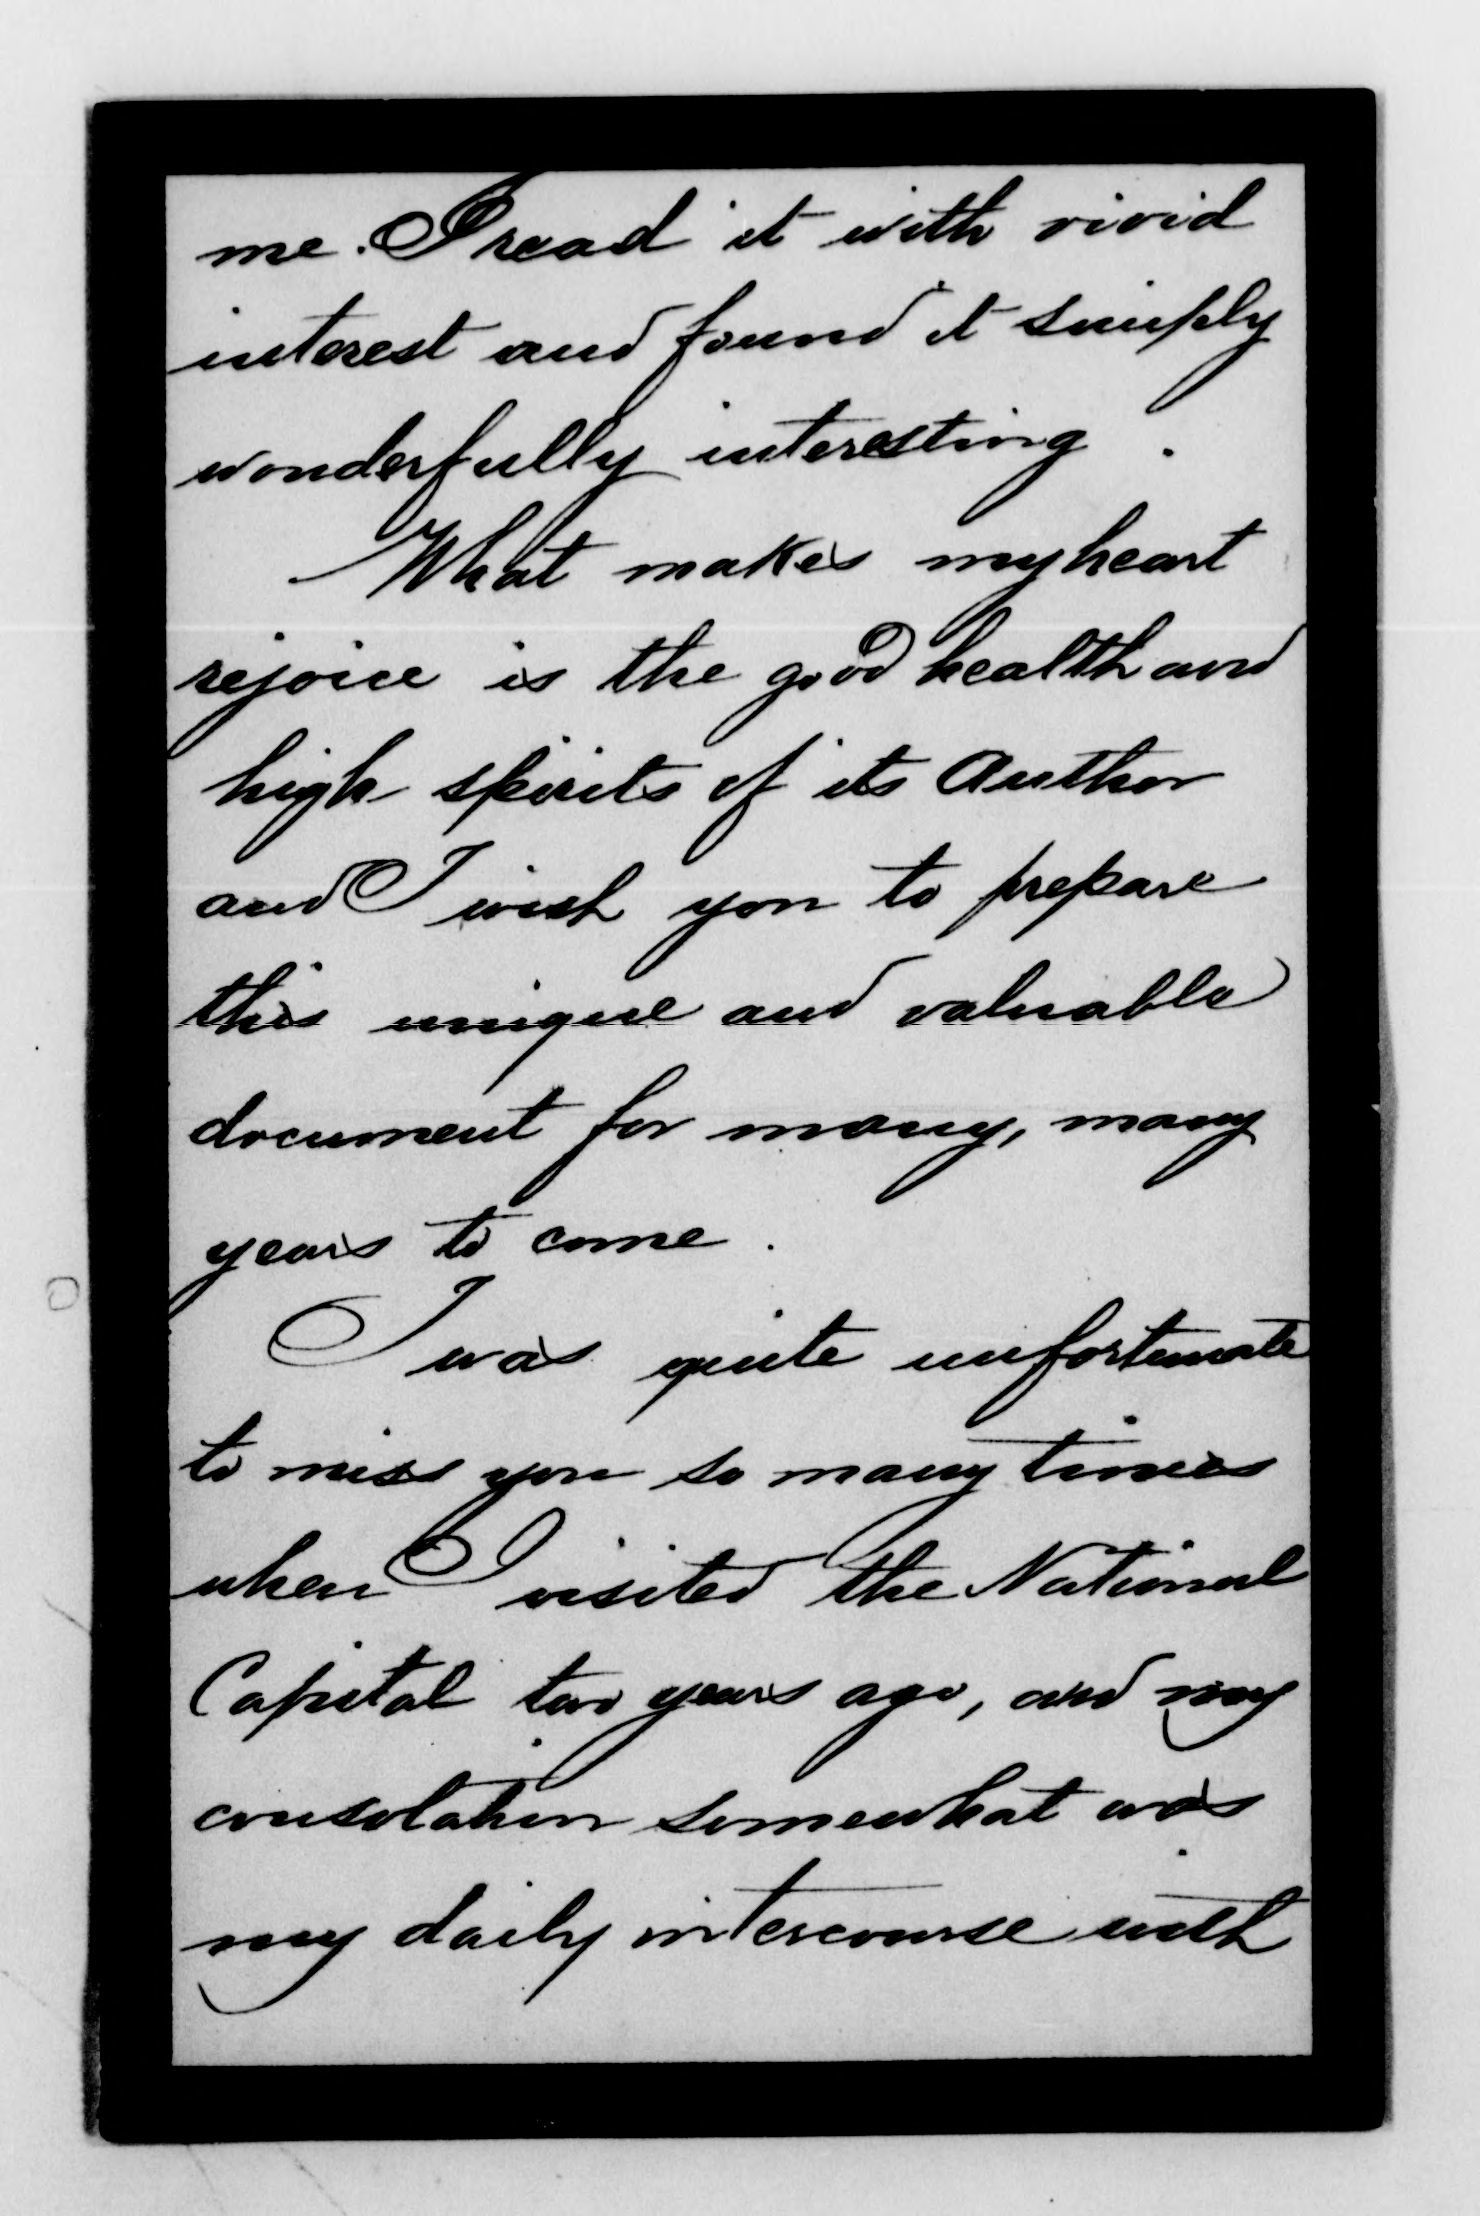 me. I read it with vivid
interest and found it simply
wonderfully interesting.
What makes my heart
rejoice is the good health and
high spirits of its Author
and I wish you to prepare
this unique and valuable
document for many, many
years to come.
I was quite unfortunate
to miss you so many times
when I visited the National
Capital two years ago, and my
consolation somewhat was
my daily intercourse with